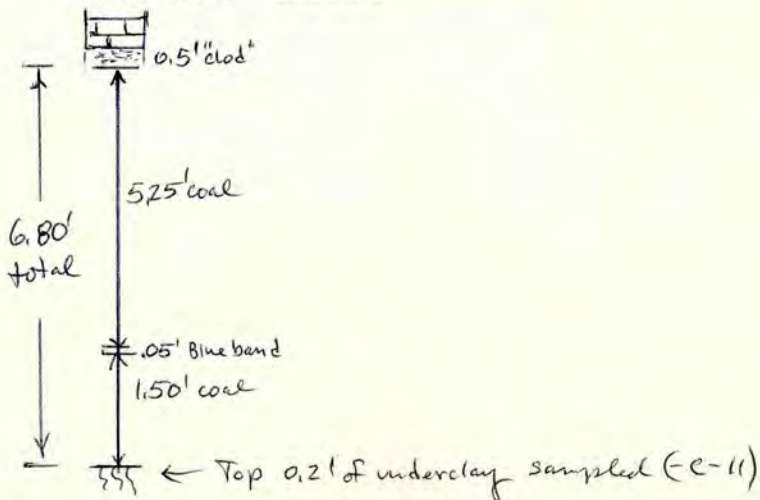 0.5' "clod"
5.25' coal
6.80'
total
.05' Blue band
1.50' coal
← Top 0.2' of underclay sampled (-C-11)